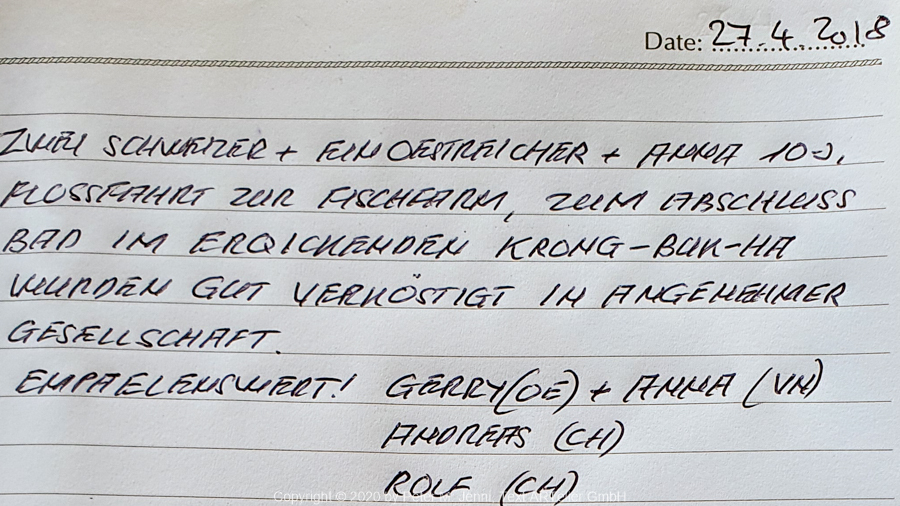 Date: 27.4.2018
ZWEI SCHWEIZER + EIN OESTREICHER + ANNA 10J.
FLOSSFAHRT ZUR FISCHFARM, ZUM ABSCHLUSS
BAD IM ERQICKENDEN KRONG-BUK-HA
WURDEN GUT VERKÖSTIGT IN ANGENEHMER
GESELLSCHAFT.
EMPFAELENSWERT! GERRY(OE) + ANNA (VN)
ANDREAS (CH)
ROLF (CH)
Copyright © 2020 by Jenni, Text Atelier GmbH